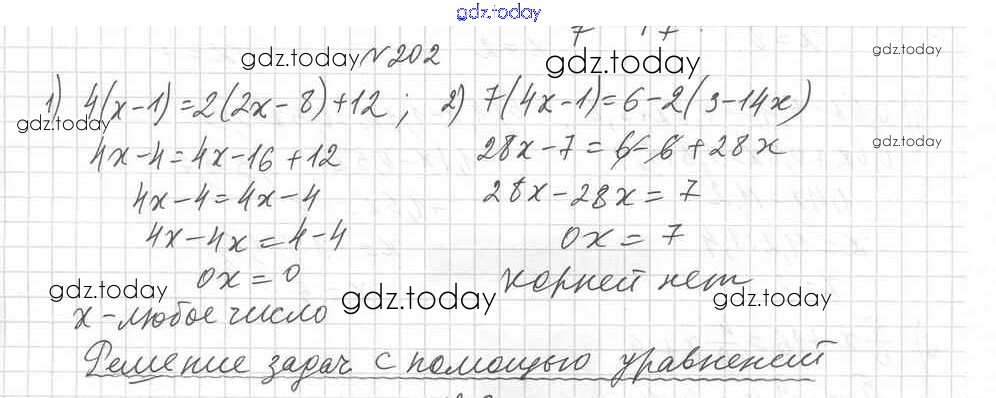 gdz.today
gdz.today № 202 gdz.today gdz.today
1) 4(x-1)=2(2x-8)+12; 2) 7(4x-1)=6-2(3-14x)
gdz.today gdz.today
4x-4=4x-16+12 28x-7=6-6+28x
4x-4=4x-4 28x-28x=7
4x-4x=4-4 0x=7
0x=0 корней нет
gdz.today gdz.today gdz.today
x-любое число
Решение задач с помощью уравнений